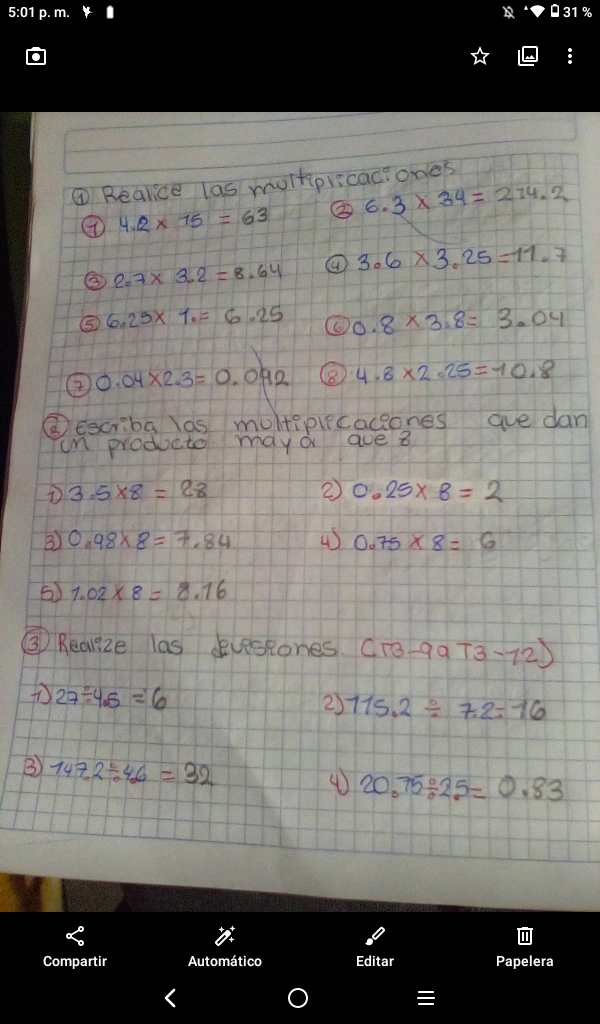 5:01 p. m. 31 %
① Realice las multiplicaciones
① 4.2 x 15 = 63 ② 6.3 x 34 = 214.2
③ 2.7 x 3.2 = 8.64 ④ 3.6 x 3.25 = 11.7
⑤ 6.25 x 1. = 6.25 ⑥ 0.8 x 3.8 = 3.04
⑦ 0.04 x 2.3 = 0.092 ⑧ 4.8 x 2.25 = 10.8
② Escriba las multiplicaciones que dan
un producto mayor que 8
1) 3.5 x 8 = 28 2) 0.25 x 8 = 2
3) 0.98 x 8 = 7.84 4) 0.75 x 8 = 6
5) 1.02 x 8 = 8.16
③ Realize las divisiones (T3-9a T3-12)
1) 27 ÷ 4.5 = 6 2) 115.2 ÷ 7.2 = 16
3) 147.2 ÷ 4.6 = 32 4) 20.75 ÷ 25 = 0.83
Compartir Automático Editar Papelera